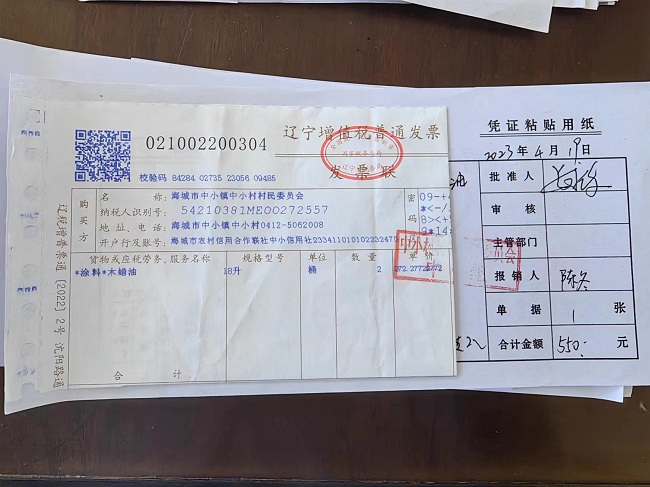 021002200304
辽宁增值税普通发票
发票联
校验码 84284 02735 23056 09485
购买方
名称：海城市中小镇中小村村民委员会
纳税人识别号：54210381ME00272557
地址、电话：海城市中小镇中小村0412-5062008
开户行及账号：海城市农村信用合作联社中小信用社233411010102232470
密
码
09-++
*<-/
8><+
9*14:
货物或应税劳务、服务名称 规格型号 单位 数量 单价
*涂料*木蜡油 18升 桶 2 272.27722772
合计
辽税增普票通〔2022〕2号沈阳路通
凭证粘贴用纸
2023年4月19日
批准人
审核
主管部门
报销人 陈冬
单据 1 张
合计金额 550. 元